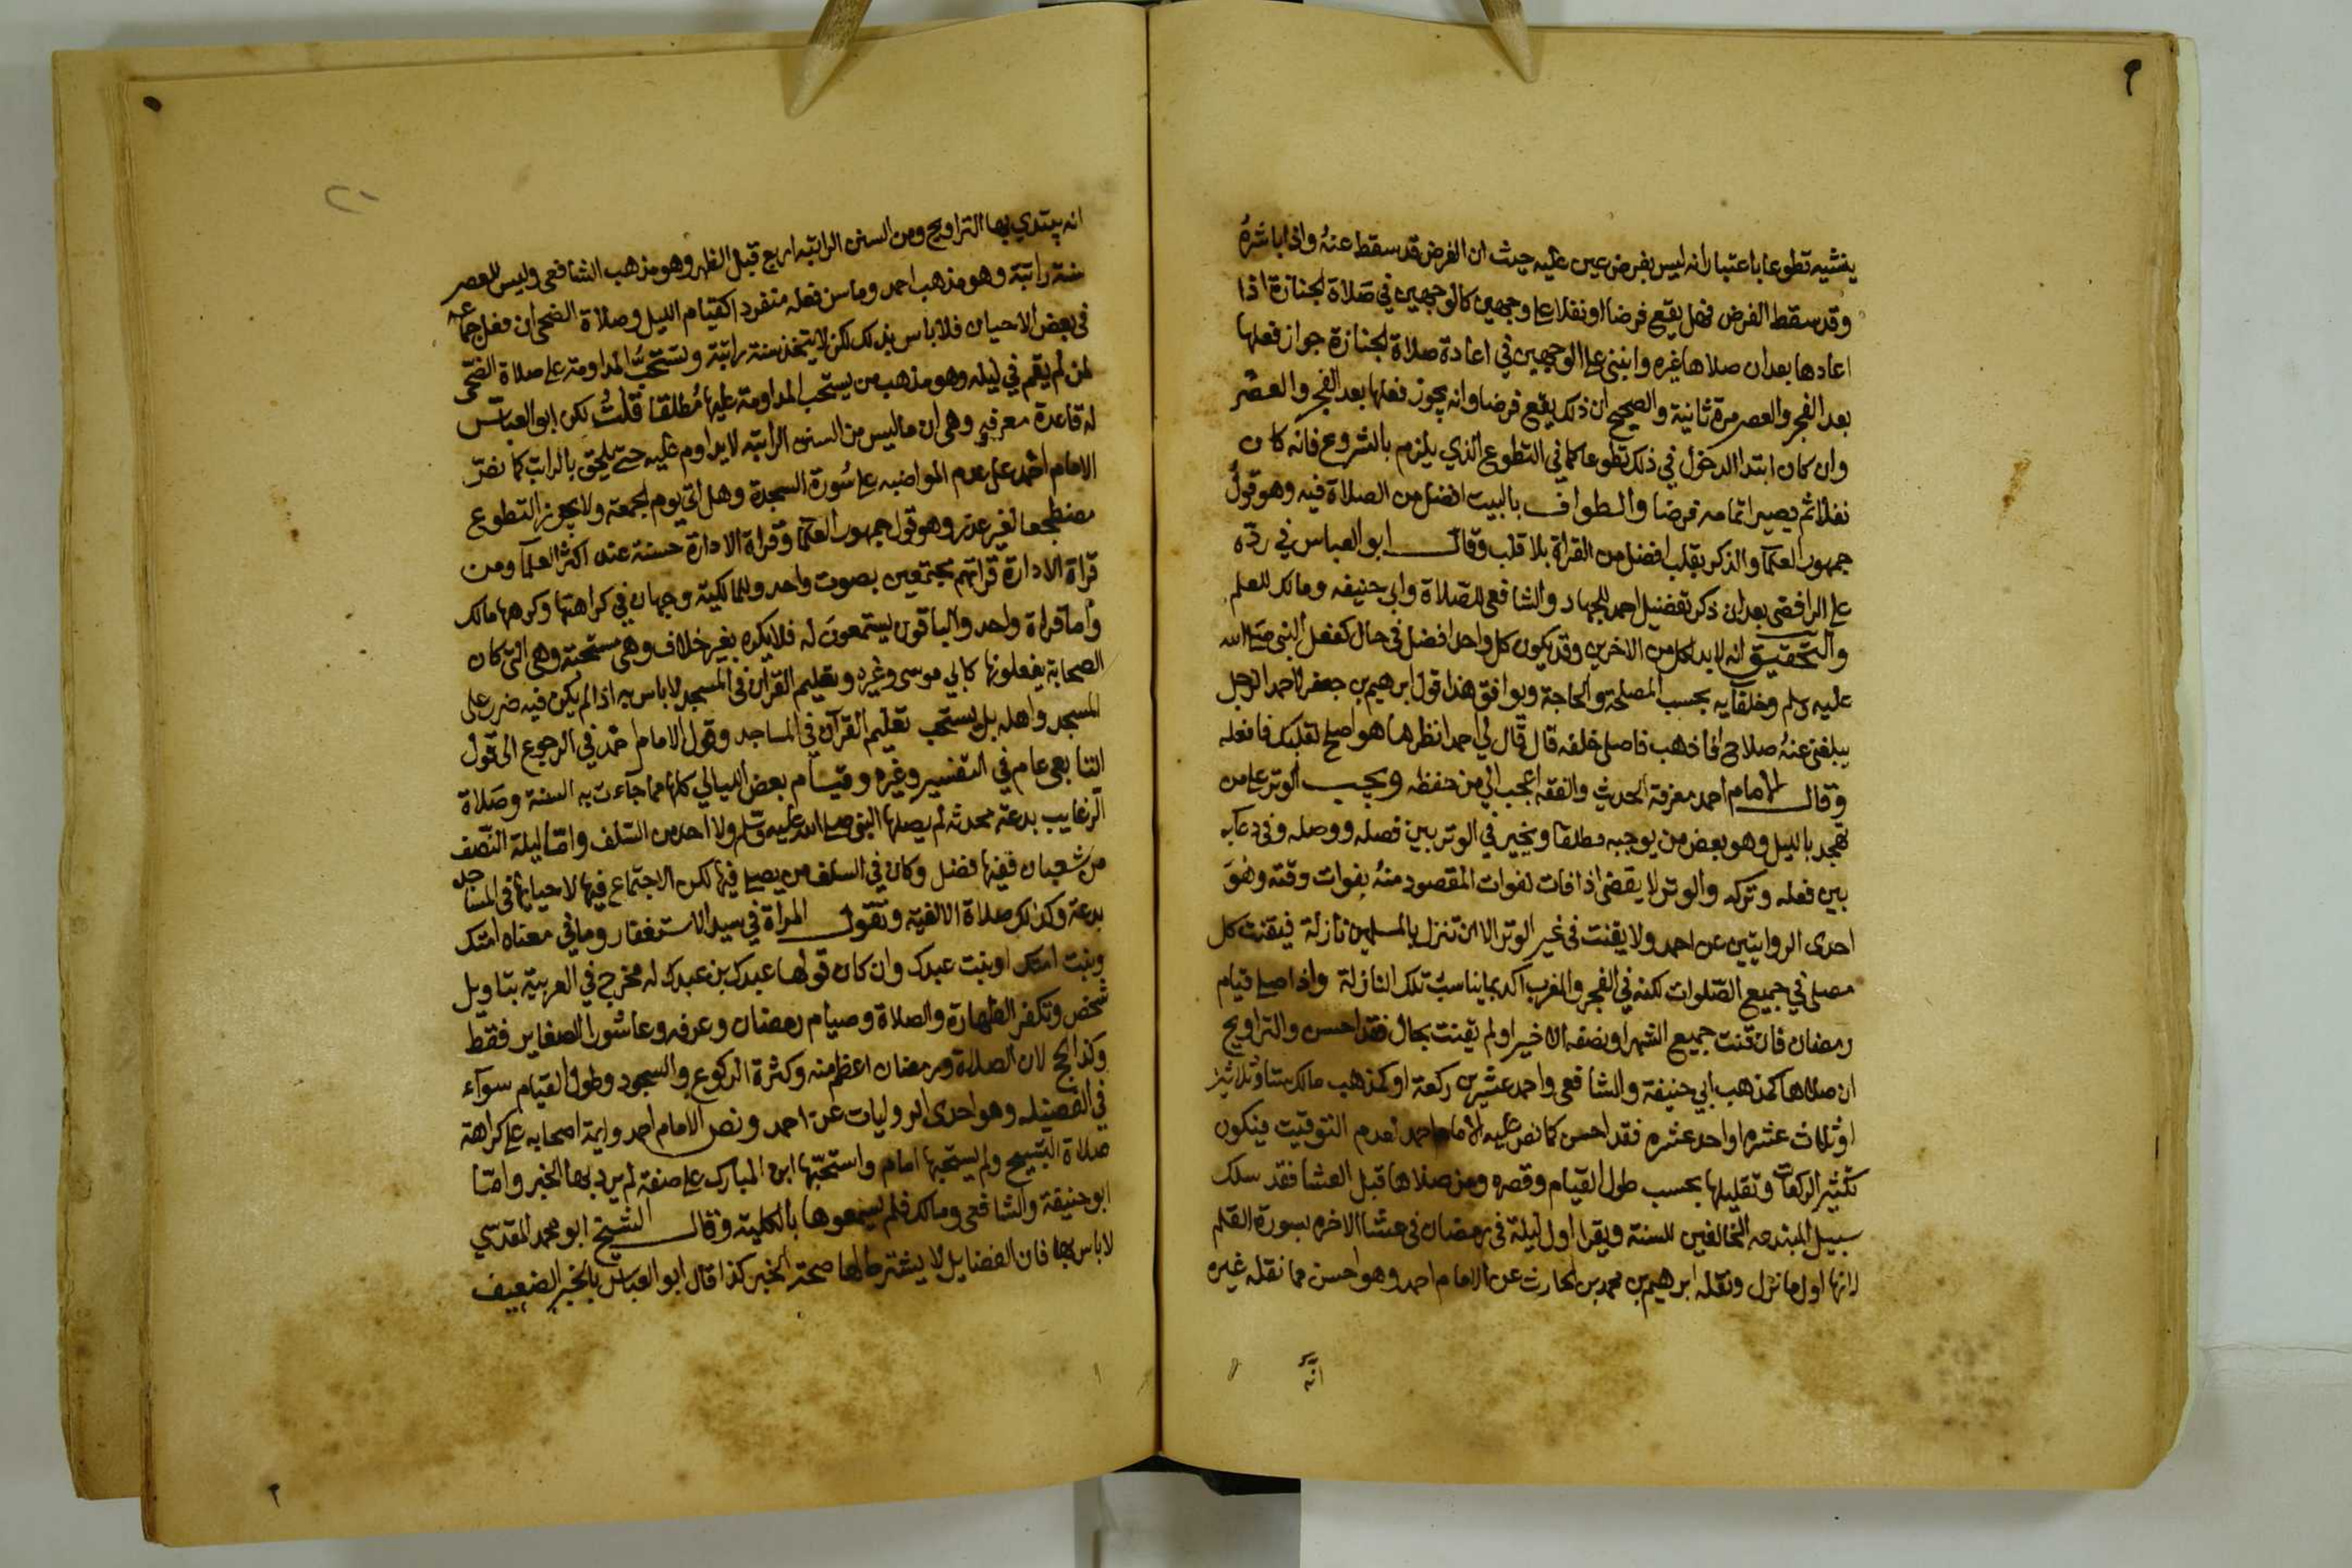 ينشيه تطوعا باعتبار انه ليس بفرض عين عليه حيث ان الفرض قد سقط عنه واذا باشره
وقد سقط الفرض فهل يقع فرضا او نفلا على وجهين كالوجهين في صلاة الجنازة اذا
اعادها بعد ان صلاها غيره وانبنى على الوجهين في اعادة صلاة الجنازة جواز فعلها
بعد الفجر والعصر مرة ثانية والصحيح ان ذلك يقع فرضا وانه يجوز فعلها بعد الفجر والعصر
وان كان ابتدا الدخول في ذلك تطوعا كما في التطوع الذي يلزم بالشروع فانه كان
نفلا ثم يصير اتمامه فرضا والطواف بالبيت افضل من الصلاة فيه وهو قول
جمهور العلما والذكر بقلب افضل من القراة بلا قلب وقال ابو العباس في رده
على الرافضي بعد ان ذكر تفضيل احمد للجهاد والشافعي للصلاة وابي حنيفه ومالك للعلم
والتحقيق انه لابد لكل من الاخرين وقد يكون كل واحد افضل في حال كفعل النبي صلى الله
عليه وسلم وخلفايه بحسب المصلحة والحاجة ويوافق هذا قول ابرهيم بن جعفر لاحمد الرجل
يبلغني عنه صلاح افاذهب فاصلي خلفه قال قال لي احمد انظر ما هو اصلح لقلبك فافعله
وقال الامام احمد معرفة الحديث والفقه اعجب الي من حفظه ويجب الوتر على من
تهجد بالليل وهو بعض من يوجبه مطلقا ويخير في الوتر بين فصله ووصله وفي دعايه
بين فعله وتركه والوتر لا يقضى اذا فات لفوات المقصود منه بفوات وقته وهو
احدى الروايتين عن احمد ولا يقنت في غير الوتر الا ان تنزل بالمسلمين نازلة فيقنت كل
مصلي في جميع الصلوات لكنه في الفجر والمغرب آكد بما يناسب تلك النازلة واذا صلى قيام
رمضان فان قنت جميع الشهر او نصفه الاخير او لم يقنت بحال فقد احسن والتراويح
ان صلاها كمذهب ابي حنيفة والشافعي واحمد عشرين ركعة او كمذهب مالك ستا وثلاثين
او ثلاث عشره او احد عشره فقد احسن كما نص عليه الامام احمد لعدم التوقيت فيكون
تكثير الركعات وتقليلها بحسب طول القيام وقصره ومن صلاها قبل العشا فقد سلك
سبيل المبتدعه المخالفين للسنة ويقرا اول ليلة في رمضان في عشا الاخره بسورة القلم
لانها اول ما نزل ونقله ابرهيم بن محمد بن الحارث عن الامام احمد وهو احسن مما نقله غيره
انه
انه يبتدي بها التراويح ومن السنن الراتبه اربع قبل الظهر وهو مذهب الشافعي وليس للعصر
سنة راتبة وهو مذهب احمد وما سن فعله منفردا كقيام الليل وصلاة الضحى ان فعل جماعه
في بعض الاحيان فلا باس بذلك لكن لا يتخذ سنة راتبة وتستحب المداومة على صلاة الضحى
لمن لم يقم في ليله وهو مذهب من يستحب المداومة عليها مطلقا قلت لكن ابو العباس
له قاعدة معرفيه وهي ان ما ليس من السنن الراتبه لا يداوم عليه حتى يلحق بالراتب كما نص
الامام احمد على عدم المواضبه على سورة السجدة وهل اتى يوم الجمعة ولا يجوز التطوع
مضطجعا لغير عذر وهو قول جمهور العلما وقراة الادارة حسنة عند اكثر العلما ومن
قراة الادارة قراتهم مجتمعين بصوت واحد وللمالكية وجهان في كراهتها وكرهها مالك
واما قراة واحد والباقون يستمعون له فلا يكره بغير خلاف وهي مستحبة وهي التي كان
الصحابة يفعلونها كابي موسى وغيره وتعليم القران في المسجد لا باس به اذا لم يكن فيه ضرر على
المسجد واهله بل يستحب تعليم القرآن في المساجد وقول الامام احمد في الرجوع الى قول
التابعي عام في التفسير وغيره وقيام بعض الليالي كلها مما جاءت به السنة وصلاة
الرغايب بدعة محدثه لم يصلها النبي صلى الله عليه وسلم ولا احد من السلف واما ليلة النصف
من شعبان ففيها فضل وكان في السلف من يصلي فيها لكن الاجتماع فيها لاحيايها في المساجد
بدعة وكذلك صلاة الالفية وتقول المراة في سيد الاستغفار وما في معناه امتك
وبنت امتك او بنت عبدك وان كان قولها عبدك بن عبدك له مخرج في العربية بتاويل
شخص وتكفر الطهارة والصلاة وصيام رمضان وعرفه وعاشورا الصغاير فقط
وكذا الحج لان الصلاة ورمضان اعظم منه وكثرة الركوع والسجود وطول القيام سوآء
في الفضيله وهو احدى الروايات عن احمد ونص الامام احمد وايمة اصحابه على كراهة
صلاة التسبيح ولم يستحبها امام واستحبها ابن المبارك على صفة لم يرد بها الخبر واما
ابو حنيفة والشافعي ومالك فلم يسمعوها بالكلية وقال الشيخ ابو محمد المقدسي
لا باس بها فان الفضايل لا يشترط لها صحة الخبر كذا قال ابو العباس بالخبر الضعيف